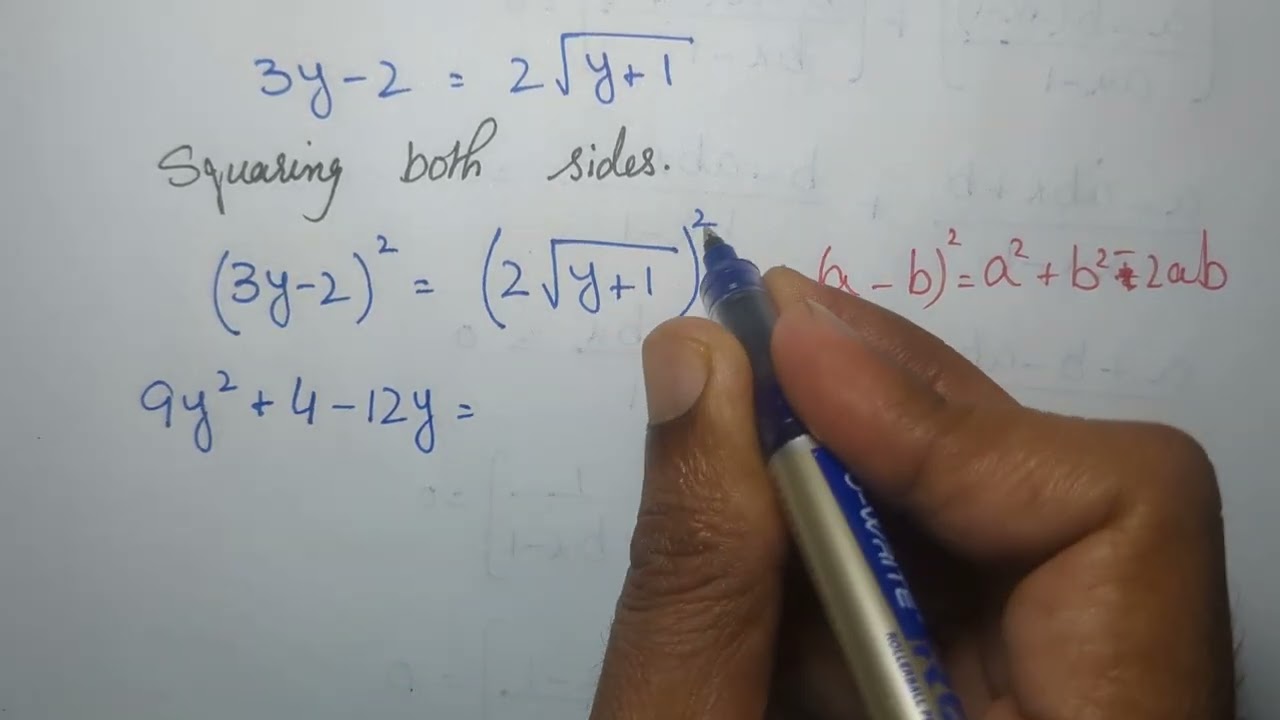 3y-2 = 2√y+1
Squaring both sides.
(3y-2)² = (2√y+1)²
(a - b)² = a² + b² - 2ab
9y² + 4 - 12y =
WRITE
ROLLERBALL